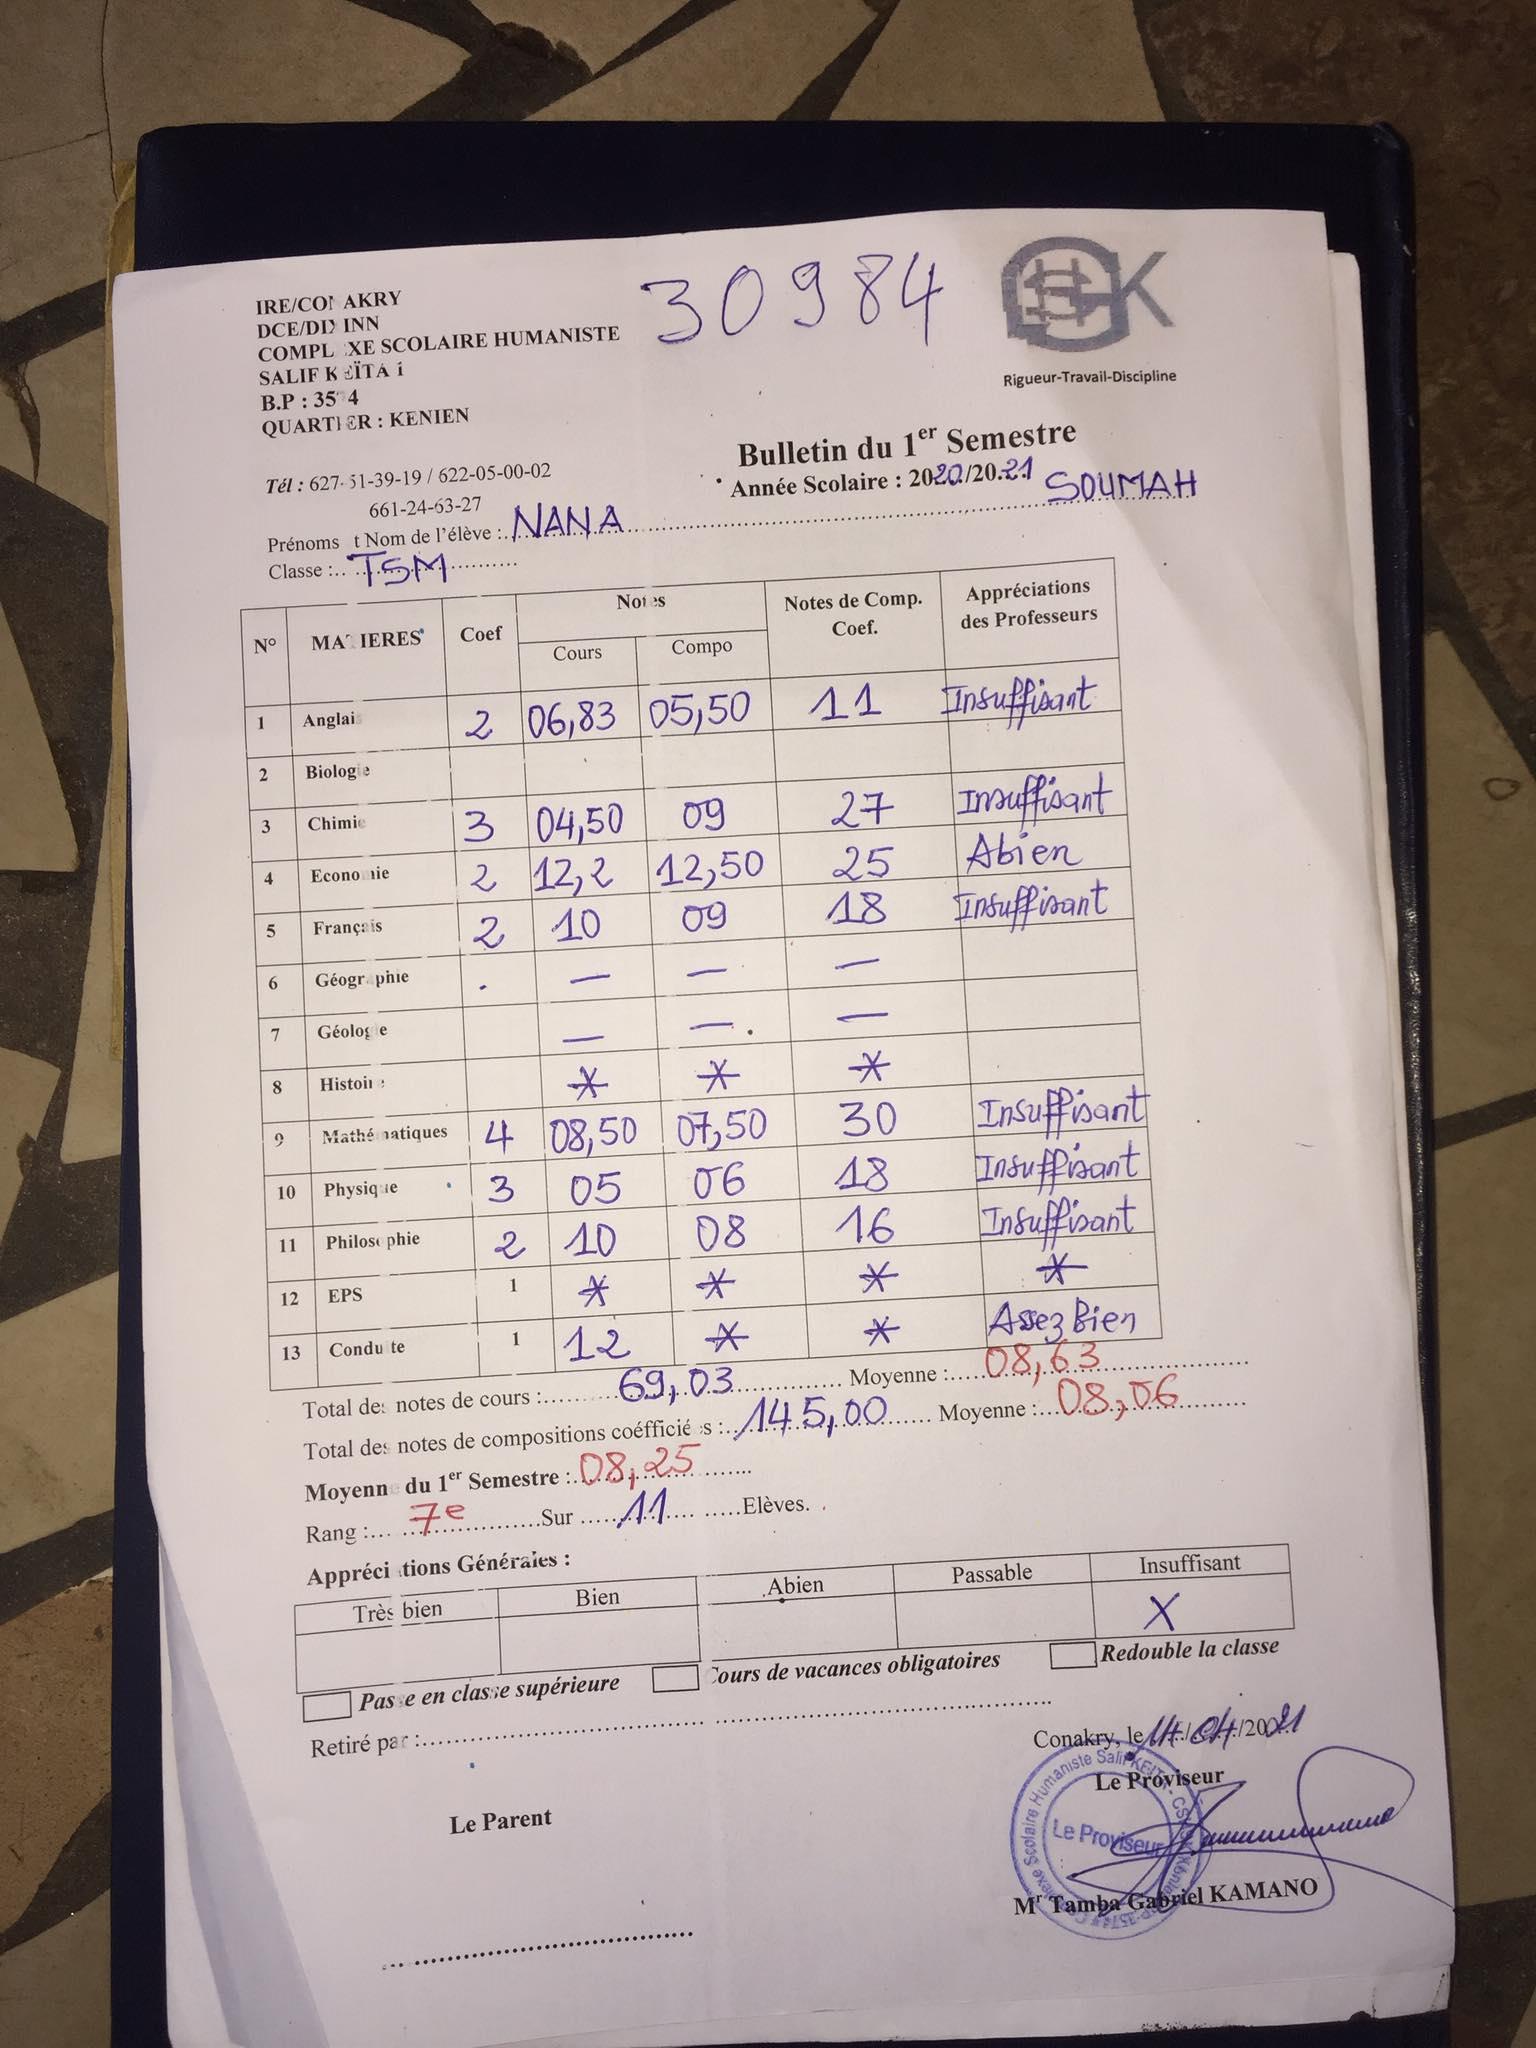 30984
IRE/CONAKRY
DCE/DIXINN
COMPLEXE SCOLAIRE HUMANISTE
SALIF KEÏTA 1
B.P : 3574
QUARTIER : KENIEN
Rigueur-Travail-Discipline
Tél : 627-51-39-19 / 622-05-00-02
661-24-63-27
Bulletin du 1er Semestre
Année Scolaire : 2020/20.21
Prénoms et Nom de l'élève : NANA SOUMAH
Classe : TSM
N° MATIERES Coef Notes Notes de Comp. Coef. Appréciations des Professeurs
Cours Compo
1 Anglais 2 06,83 05,50 11 Insuffisant
2 Biologie
3 Chimie 3 04,50 09 27 Insuffisant
4 Economie 2 12,2 12,50 25 Abien
5 Français 2 10 09 18 Insuffisant
6 Géographie . — — —
7 Géologie — — —
8 Histoire * * *
9 Mathématiques 4 08,50 07,50 30 Insuffisant
10 Physique 3 05 06 18 Insuffisant
11 Philosophie 2 10 08 16 Insuffisant
12 EPS 1 * * * *
13 Conduite 1 12 * * Assez Bien
Total des notes de cours : 69,03 Moyenne : 08,63
Total des notes de compositions coéfficiés : 145,00 Moyenne : 08,06
Moyenne du 1er Semestre : 08,25
Rang : 7e Sur 11 Elèves.
Appréciations Générales :
Très bien Bien Abien Passable Insuffisant
X
Passe en classe supérieure Cours de vacances obligatoires Redouble la classe
Retiré par :
Conakry, le 14/04/2021
Le Proviseur
Le Parent
Le Proviseur
Mr Tamba Gabriel KAMANO